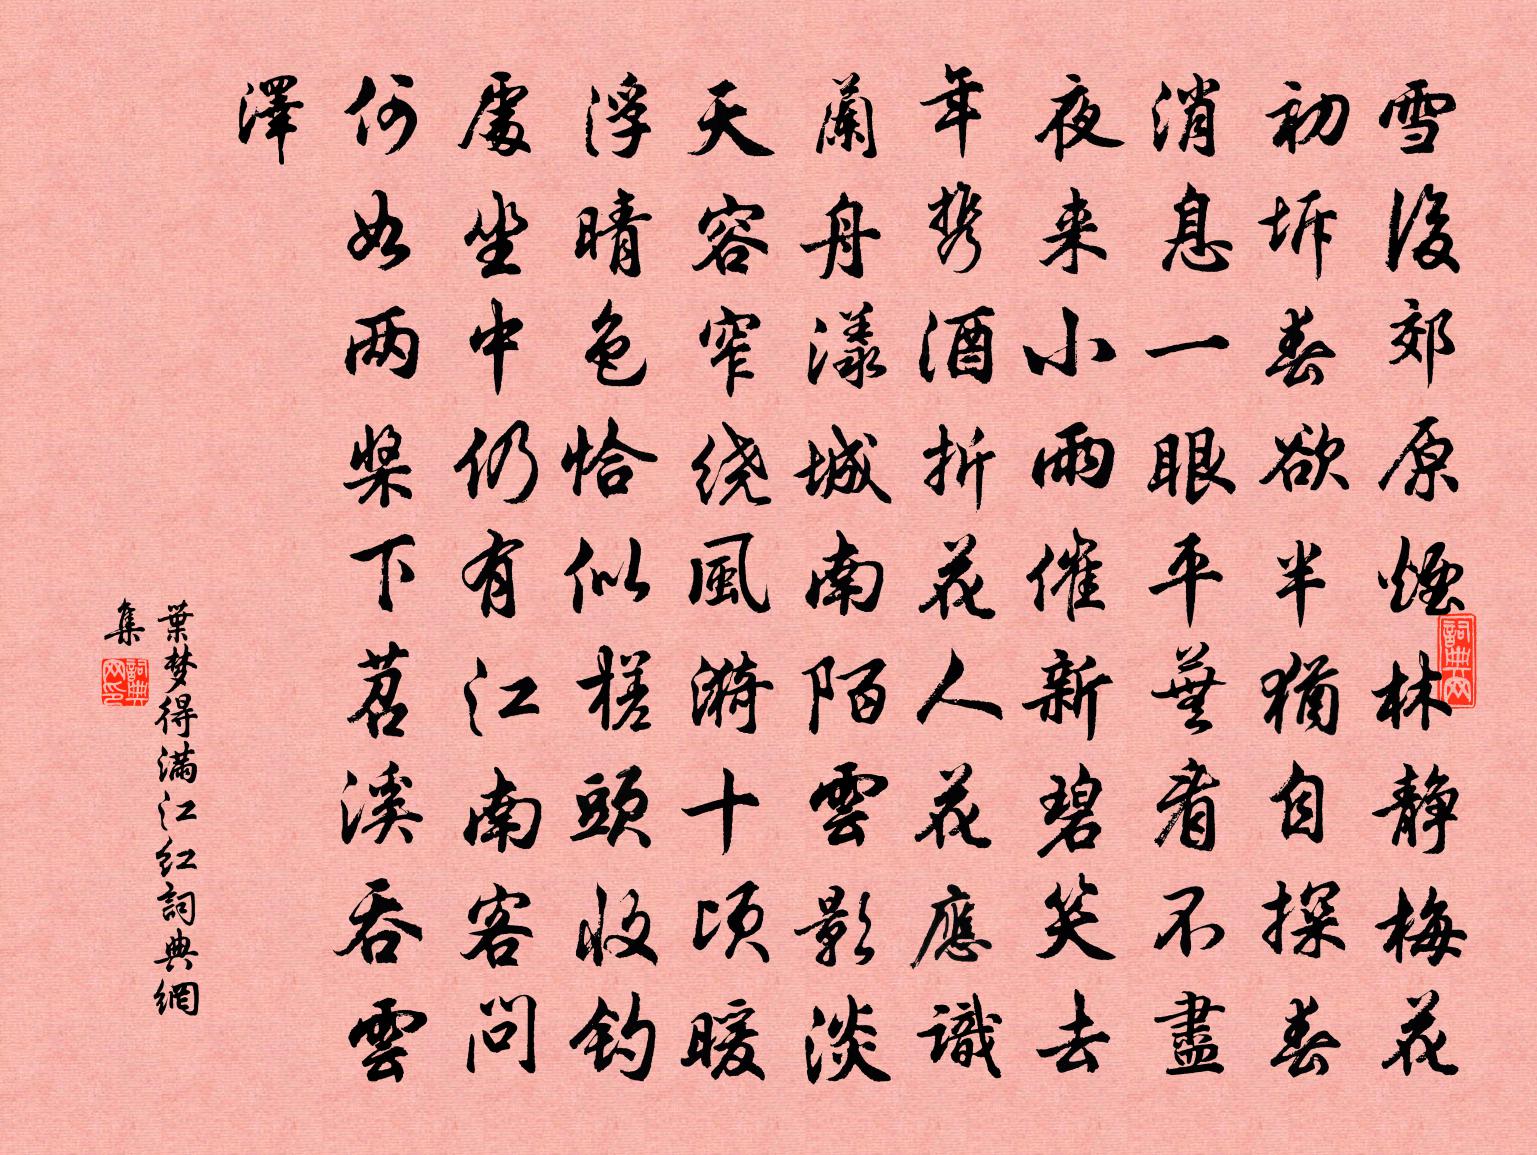 雪後郊原煙林静梅花
初坼春欲半猶自探春
消息一眼平蕪看不盡
夜来小雨催新碧笑去
年携酒折花人花應識
蘭舟漾城南陌雲影淡
天容窄绕風漪十頃暖
浮晴色恰似槎頭收钓
處坐中仍有江南客問
何如两桨下苕溪吞雲
澤
葉梦得满江红詞典網
集
詞典网
詞典网印